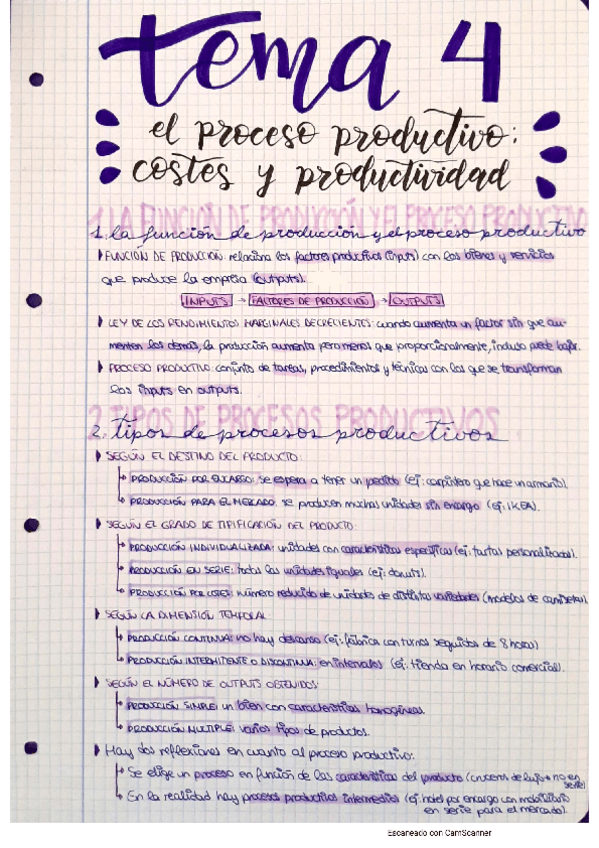 tema 4
el proceso productivo:
costes y productividad
1. LA FUNCIÓN DE PRODUCCIÓN Y EL PROCESO PRODUCTIVO
1. la función de producción y el proceso productivo
FUNCIÓN DE PRODUCCIÓN: relaciona los factores productivos (inputs) con los bienes y servicios
que produce la empresa (outputs).
INPUTS → FACTORES DE PRODUCCIÓN → OUTPUTS
LEY DE LOS RENDIMIENTOS MARGINALES DECRECIENTES: cuando aumenta un factor sin que au-
menten los demás, la producción aumenta pero menos que proporcionalmente, incluso puede bajar.
PROCESO PRODUCTIVO: conjunto de tareas, procedimientos y técnicas con las que se transforman
los inputs en outputs.
2. TIPOS DE PROCESOS PRODUCTIVOS
2. tipos de procesos productivos
SEGÚN EL DESTINO DEL PRODUCTO:
PRODUCCIÓN POR ENCARGO: se espera a tener un pedido (ej: carpintero que hace un armario).
PRODUCCIÓN PARA EL MERCADO: se producen muchas unidades sin encargo (ej: IKEA).
SEGÚN EL GRADO DE TIPIFICACIÓN DEL PRODUCTO:
PRODUCCIÓN INDIVIDUALIZADA: unidades con características específicas (ej: tartas personalizadas).
PRODUCCIÓN EN SERIE: todas las unidades iguales (ej: donuts).
PRODUCCIÓN POR LOTES: número reducido de unidades de distintas variedades (modelos de camisetas).
SEGÚN LA DIMENSIÓN TEMPORAL:
PRODUCCIÓN CONTINUA: no hay descanso (ej: fábrica con turnos seguidos de 8 horas)
PRODUCCIÓN INTERMITENTE O DISCONTINUA: en intervalos (ej: tienda en horario comercial).
SEGÚN EL NÚMERO DE OUTPUTS OBTENIDOS:
PRODUCCIÓN SIMPLE: un bien con características homogéneas.
PRODUCCIÓN MÚLTIPLE: varios tipos de productos.
Hay dos reflexiones en cuanto al proceso productivo:
Se elige un proceso en función de las características del producto (cruceros de lujo → no en
serie)
En la realidad hay procesos productivos intermedios (ej: hotel por encargo con mobiliario
en serie para el mercado).
Escaneado con CamScanner